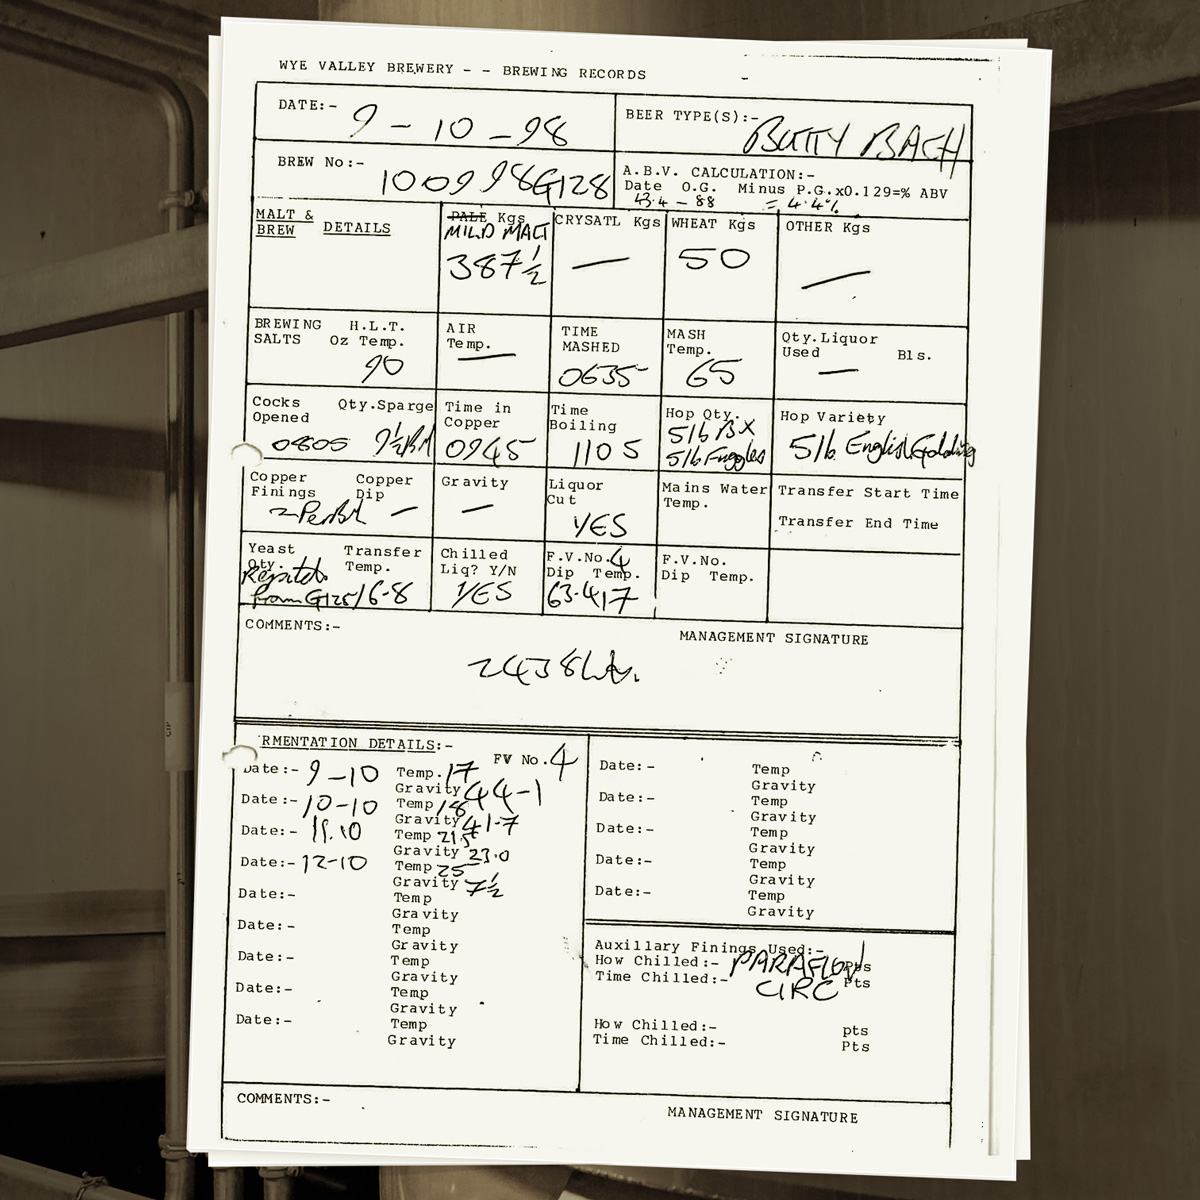 WYE VALLEY BREWERY - - BREWING RECORDS
DATE:- 9 - 10 - 98
BEER TYPE(S):- BUTTY BACH
BREW No:- 100998G128
A.B.V. CALCULATION:-
Date O.G. Minus P.G.x0.129=% ABV
43.4 - 88 = 4.4%
MALT & BREW DETAILS
PALE Kgs
MILD MALT
387 ½
CRYSATL Kgs
—
WHEAT Kgs
50
OTHER Kgs
—
BREWING SALTS Oz
H.L.T. Temp.
90
AIR Temp.
—
TIME MASHED
0635
MASH Temp.
65
Qty.Liquor Used Bls.
—
Cocks Opened
0805
Qty.Sparge
9½
Time in Copper
0945
Time Boiling
1105
Hop Qty.
5lb BX
5lb Fuggles
Hop Variety
5lb English Golding
Copper Finings
2 Per Brl
Copper Dip
—
Gravity
—
Liquor Cut
YES
Mains Water Temp.
Transfer Start Time
Transfer End Time
Yeast Qty.
from G125
Transfer Temp.
16-8
Chilled Liq? Y/N
YES
F.V.No. 4
Dip Temp.
63.4 17
F.V.No.
Dip Temp.
COMMENTS:-
MANAGEMENT SIGNATURE
RMENTATION DETAILS:-
FV No. 4
Date:- 9-10 Temp. 17
Gravity 44-1
Date:- 10-10 Temp 18
Gravity 41-7
Date:- 11.10 Temp 21.5
Gravity 23.0
Date:- 12-10 Temp 25
Gravity 7½
Date:- Temp
Gravity
Date:- Temp
Gravity
Date:- Temp
Gravity
Date:- Temp
Gravity
Date:- Temp
Gravity
Date:- Temp
Gravity
Date:- Temp
Gravity
Date:- Temp
Gravity
Date:- Temp
Gravity
Date:- Temp
Gravity
Auxillary Finings Used:-
How Chilled:- PARAFLOW Pts
Time Chilled:- CIRC Pts
How Chilled:- pts
Time Chilled:- Pts
COMMENTS:-
MANAGEMENT SIGNATURE